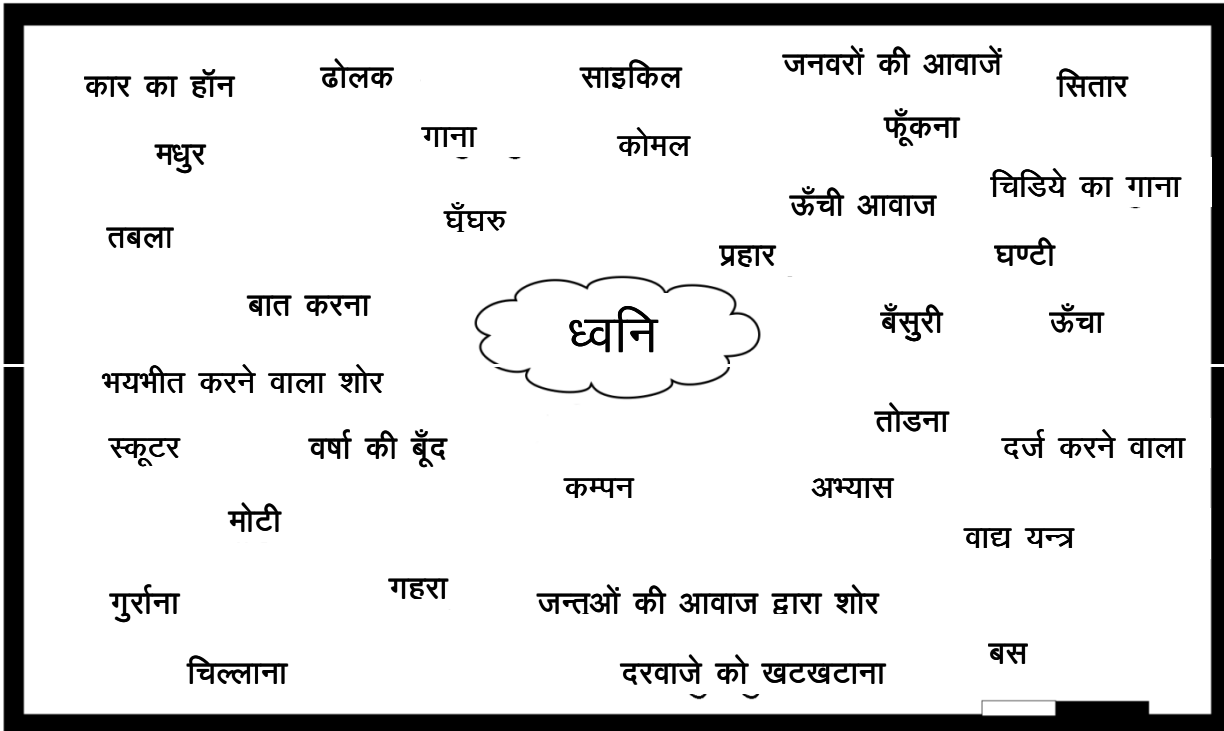 कार का हॉन
ढोलक
साइकिल
जनवरों की आवाजें
सितार
मधुर
गाना
कोमल
फूँकना
चिडिये का गाना
तबला
घँघरु
ऊँची आवाज
प्रहार
घण्टी
बात करना
ध्वनि
बँसुरी
ऊँचा
भयभीत करने वाला शोर
तोडना
स्कूटर
वर्षा की बूँद
दर्ज करने वाला
कम्पन
अभ्यास
मोटी
वाद्य यन्त्र
गुर्राना
गहरा
जन्तओं की आवाज द्वारा शोर
बस
चिल्लाना
दरवाजे को खटखटाना